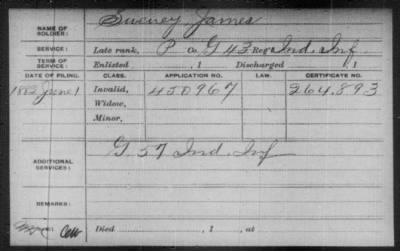 NAME OF SOLDIER: Sweney, James
SERVICE: Late rank, P Co. G 43 Reg't Ind. Inf.
TERM OF SERVICE: Enlisted , 1 Discharged , 1
DATE OF FILING. CLASS. APPLICATION NO. LAW. CERTIFICATE NO.
1882 June 1 Invalid, 450967 264,893
Widow,
Minor,
ADDITIONAL SERVICES: G. 57 Ind. Inf
REMARKS:
Died , 1 , at